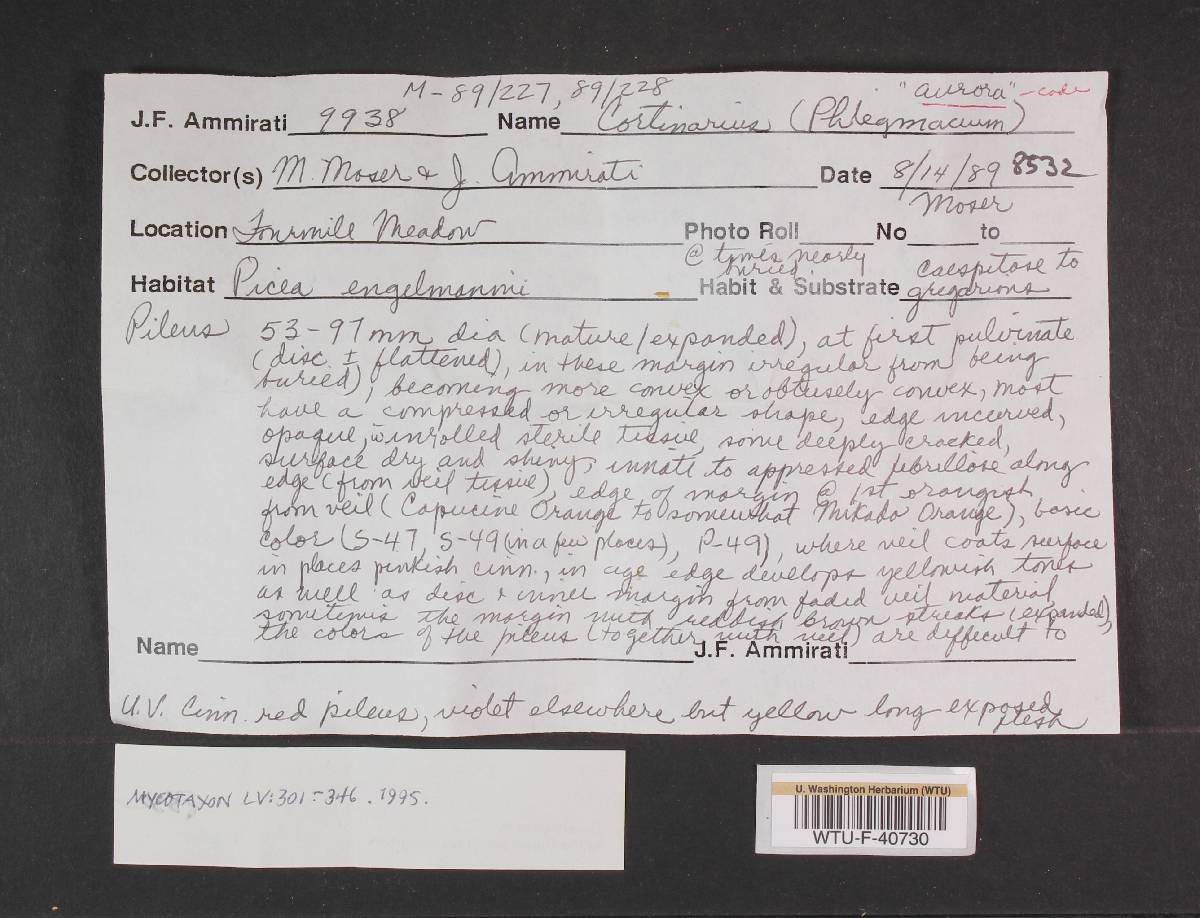 M-89/227, 89/228 "aurora" - code
J.F. Ammirati 9938 Name Cortinarius (Phlegmacium)
Collector(s) M. Moser & J. Ammirati Date 8/14/89 8532
Moser
Location Fourmile Meadow Photo Roll No to
@ times nearly buried
Habitat Picea engelmannii Habit & Substrate caespitose to gregarious
Pileus 53-97 mm dia (mature/expanded), at first pulvinate
(disc ± flattened), in these margin irregular from being
buried), becoming more convex or obtusely convex, most
have a compressed or irregular shape, edge incurved,
opaque, w̄ inrolled sterile tissue, some deeply cracked,
surface dry and shiny, innate to appressed fibrillose along
edge (from veil tissue), edge of margin @ 1st orangish
from veil (Capucine Orange to somewhat Mikado Orange), basic
color (S-47, S-49 (in a few places), P-49), where veil coats surface
in places pinkish cinn., in age edge develops yellowish tones
as well as disc & inner margin from faded veil material,
sometimes the margin with reddish brown streaks (expanded),
the colors of the pileus (together with veil) are difficult to
Name J.F. Ammirati
U.V. Cinn. red pileus, violet elsewhere but yellow long exposed
flesh
MYCOTAXON LV: 301-346. 1995.
U. Washington Herbarium (WTU)
WTU-F-40730